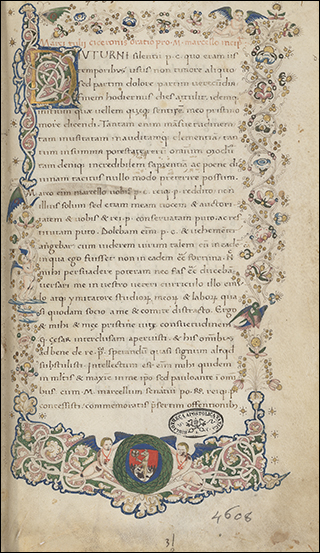 Marci tulii ciceronis oratio pro. M. marcello incipit
DIVTURNI silentii p c. quo eram iis
temporibus usus non timore aliquo
sed partim dolore partim verecundia
finem hodiernus dies attulit: idemq;
initium quae vellem quęq; meo pristino
more dicendi. Tantam enim mansuetudinem
tam inusitatam inauditamq; clementiam tan
tum in summa potestate rerum omnium modum
tam deniq; incredibilem sapientiam ac poene di
vinam tacitus nullo modo preterire possum.
Marco enim marcello vobis p.c. reip. reddito non
illius solum sed etiam meam vocem & auctori
tatem & vobis & rei p. conservatam puto ac res
titutam puto. Dolebam enim p.c. & vehementer
angebar cum viderem virum talem cum in eade
in qua ego fuisset non in eadem esse fortuna. N
mihi persuadere poteram nec fas esse dicebam
versari me in nostro veteri curriculo illo emu
lo atq; imitatore studiorum meorum & laborum qua
si quodam socio a me & comite distracto. Ergo
& mihi & meę pristinę vitę consuetudinem
c. cęsar interclusam aperuisti: & his omnibus
ad bene de re. p. sperandum quasi signum aliquod
sustulisti. Intellectum est enim mihi quidem
in multis & maxime in me ipso sed paulo ante in om
nibus. cum M. marcellum senatui po. ro. reiq; p.
concessisti: commemoratis presertim offensionib.
4608